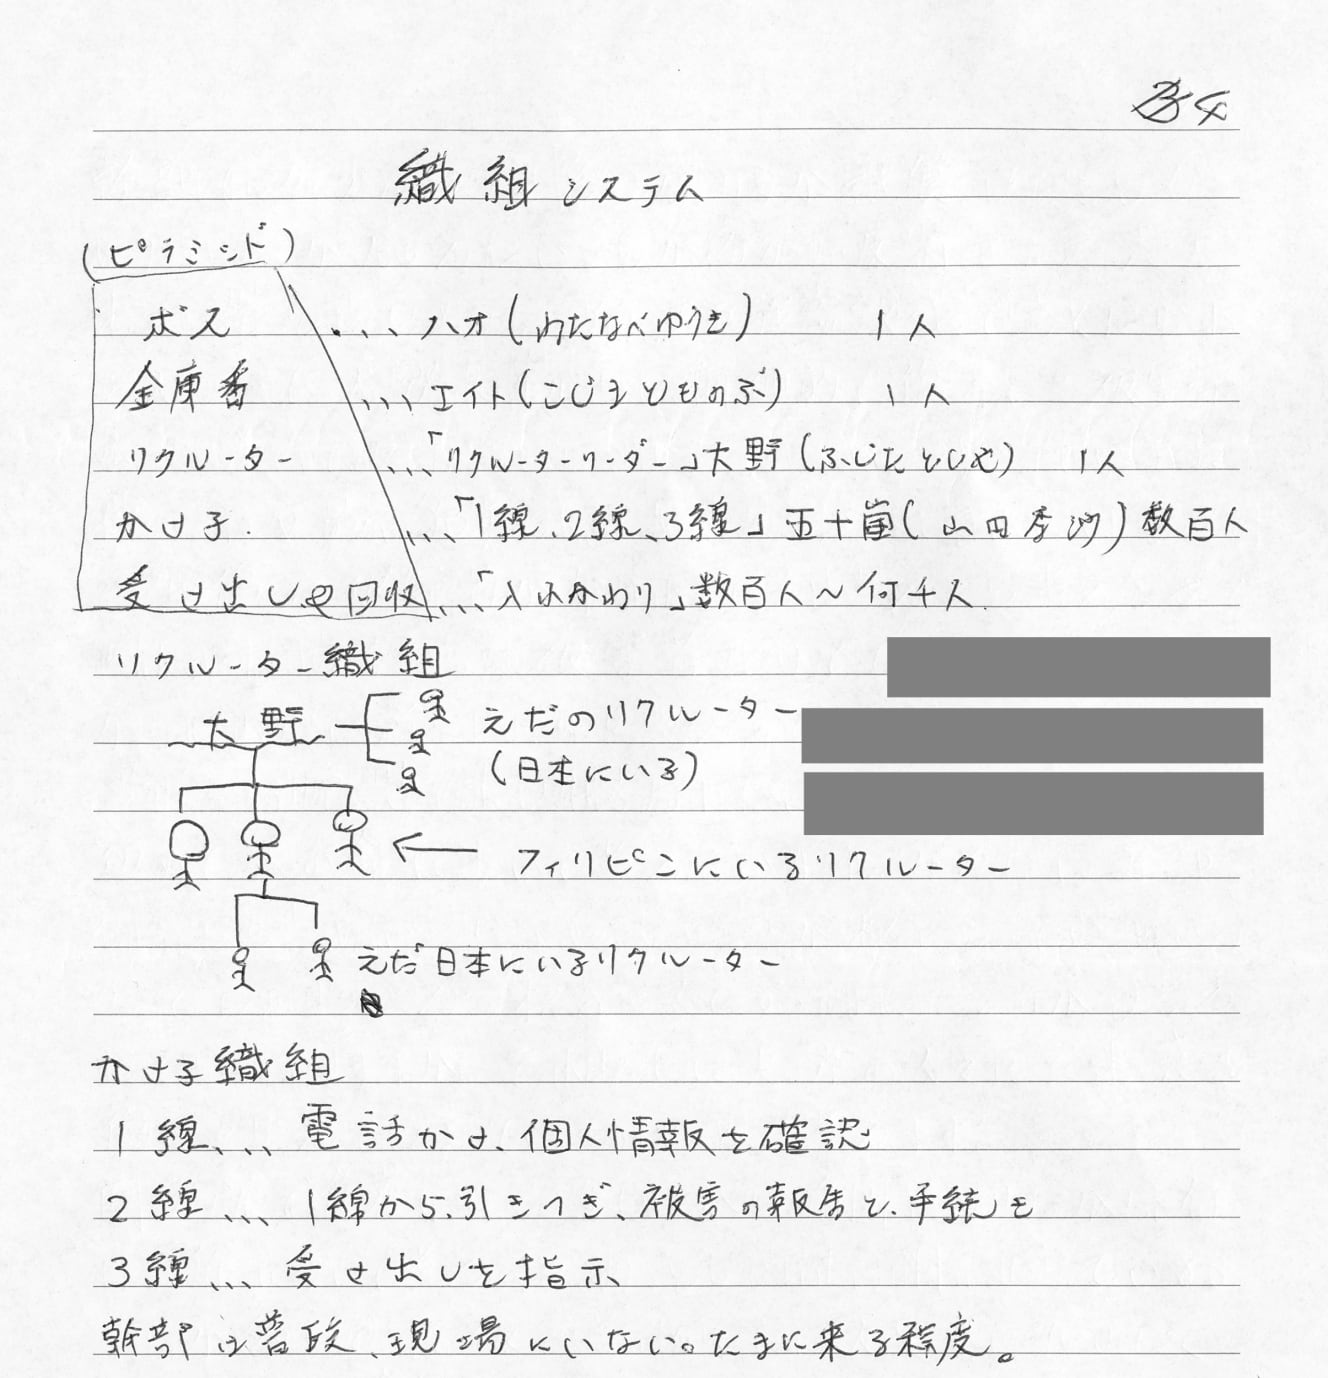 織組システム
(ピラミッド)
ボス ・・・ ハオ(わたなべゆうき) 1人
金庫番 ・・・ エイト(こじまとものぶ) 1人
リクルーター ・・・ 「リクルーターリーダー」大野(ふじたとしや) 1人
かけ子 ・・・ 「1線、2線、3線」五十嵐(山田李沙)数百人
受け出しや回収 ・・・ 「入れかわり」数百人~何千人
リクルーター織組
大野 えだのリクルーター
(日本にいる)
← フィリピンにいるリクルーター
えだ日本にいるリクルーター
かけ子織組
1線、、、 電話かけ、個人情報を確認
2線、、、 1線から、引きつぎ、被害の報告と、手続を
3線、、、 受け出しを指示、
幹部は普段、現場にいない。たまに来る程度。